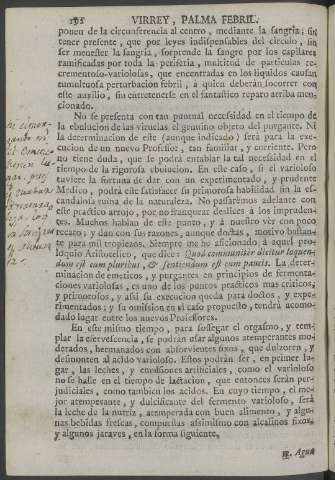 VIRREY, PALMA FEBRIL.
ponen de la circunferencia al centro, mediante la sangria; sin
tener presente, que por leyes indispensables del circulo, sin
ser menester la sangria, sorprende la sangre por los capilares
ramificadas por toda la periferia, multitud de particulas re-
crementoso-variolosas, que encontradas en los liquidos causan
tumultuosa perturbacion febril, à quien deberán socorrer con
este auxilio, sin entretenerse en el fantastico reparo arriba men-
cionado.
No se presenta con tan puntual necessidad en el tiempo de
la ebulucion de las viruelas el genuino objeto del purgante. Ni
la determinacion de este (aunque indicado) será para la exe-
cucion de un nuevo Professor, tan familiar, y corriente. Pero
no tiene duda, que se podrá entablar la tal necessidad en el
tiempo de la rigurosa ebulucion. En este caso, si el varioloso
tuviere la fortuna de dar con un experimentado, y prudente
Medico, podrá este satisfacer su primorosa habilidad sin la es-
candalosa ruina de la naturaleza. No passarémos adelante con
este practico arrojo, por no franquear deslices à los impruden-
tes. Muchos hablan de este punto, y à nuestro ver con poco
recato, y dan con sus razones, aunque doctas, motivo bastan-
te para mil tropiezos. Siempre me he aficionado à aquel pro-
loquio Aristotelico, que dice: Quod communiter dicitur loquen-
dum est cum pluribus, & sentiendum est cum paucis. La deter-
minacion de emeticos, y purgantes en principios de fermenta-
ciones variolosas, es uno de los puntos practicos mas criticos,
y primorosos, y assi su execucion queda para doctos, y expe-
rimentados; y su omission en el caso propuesto, tendrá acomo-
dado lugar entre los nuevos Professores.
En este mismo tiempo, para sossegar el orgasmo, y tem-
plar la efervescencia, se podrán usar algunos atemperantes mo-
derados, hermanados con absorvientes fixos, que dulzoren, y
desmonten al acido varioloso. Estos podrán ser, en primer lu-
gar, las leches, y emulsiones artificiales, como el varioloso
no se halle en el tiempo de lactacion, que entonces serán per-
judiciales, como tambien los acidos. En cuyo tiempo, el me-
jor atemperante, y dulcificante del fermento varioloso, será
la leche de la nutriz, atemperada con buen alimento, y algu-
nas bebidas frescas, compuestas assimismo con alcalinos fixos,
y algunos jaraves, en la forma siguiente.
℞. Agua